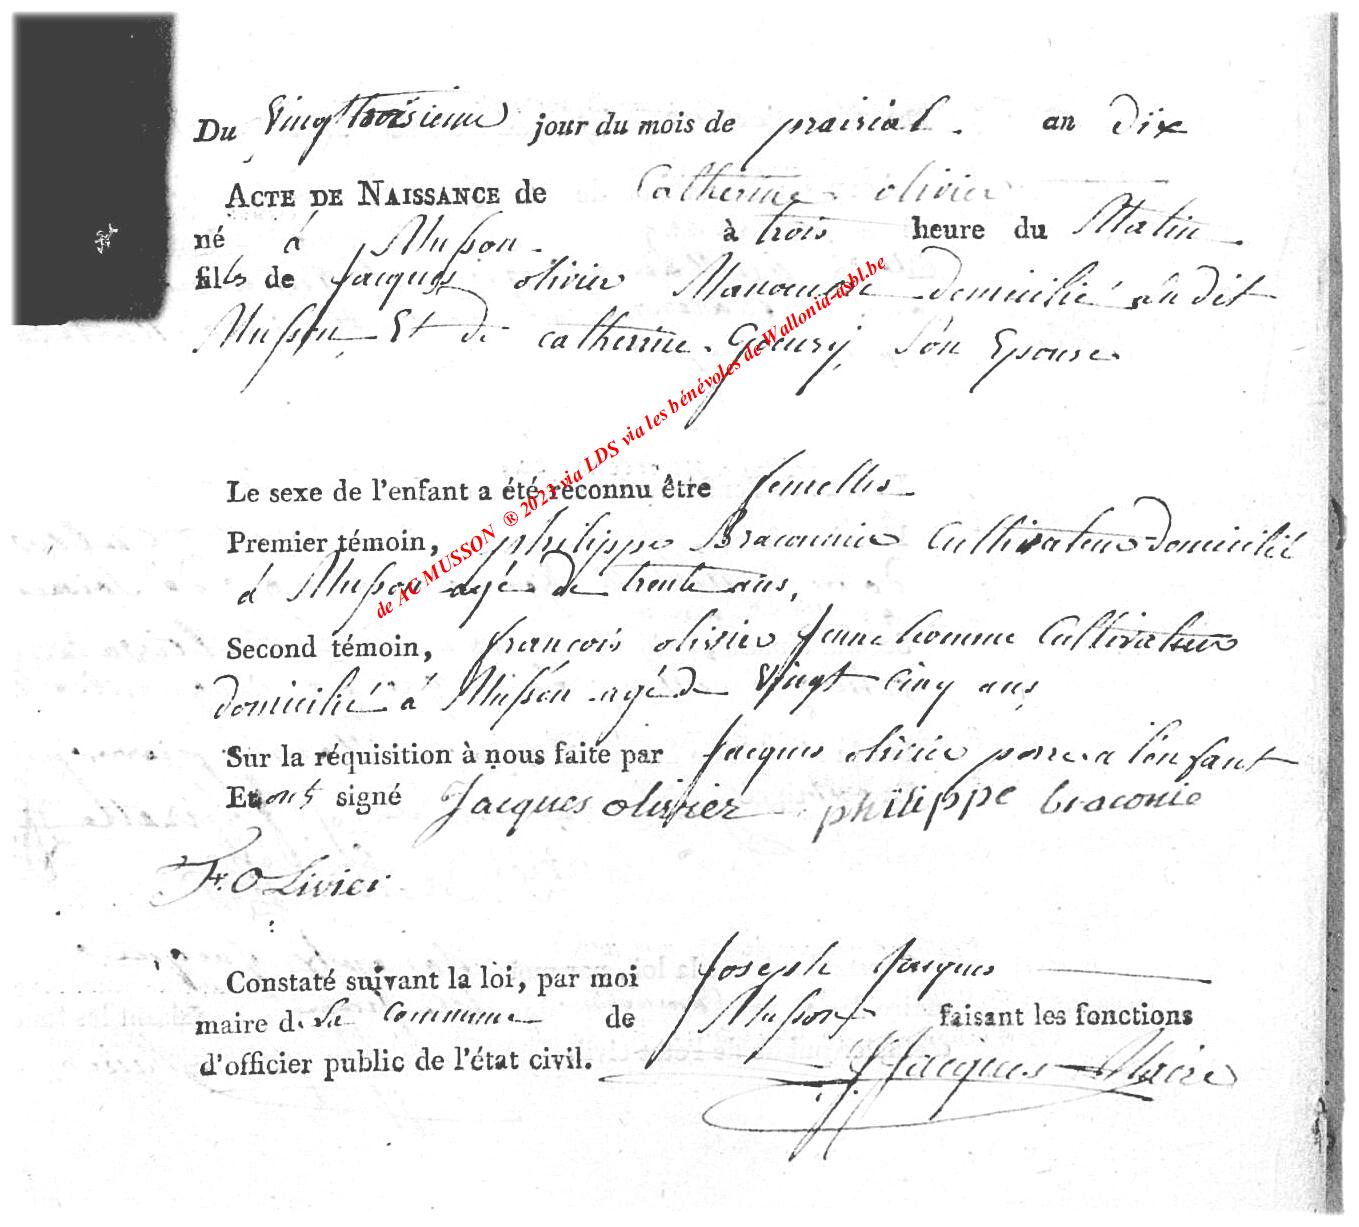 Du Vingt troisieme jour du mois de prairial. an dix
ACTE DE NAISSANCE de Catherine olivier
né à Musson. à trois heure du Matin
fille de Jacques olivier Manoeuvre domicilié au dit
Musson Et de catherine Goeury Son Epouse
Le sexe de l'enfant a été reconnu être femelle
Premier témoin, philippe Braconnier Cultivateur domicilié
à Musson agé de trente ans,
Second témoin, françois olivier jeune homme Cultivateur
domicilié à Musson agé de Vingt Cinq ans
Sur la réquisition à nous faite par Jacques olivier perre a l'enfant
Et ont signé Jacques olivier philippe braconie
Fr. OLivier
Constaté suivant la loi, par moi Joseph Jacques
maire de La Commune de Musson faisant les fonctions
d'officier public de l'état civil. JJacques Maire
de AC MUSSON ® 2023 via LDS via les bénévoles de Wallonia-asbl.be